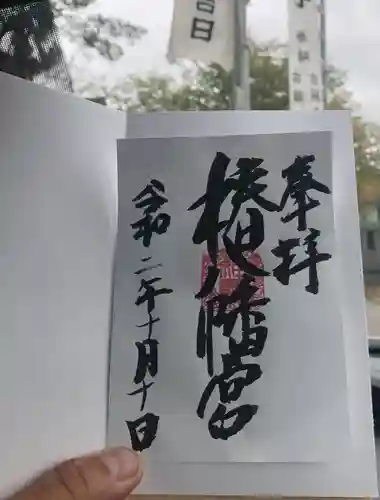 奉拝
椿八幡宮
令和二年十月十日